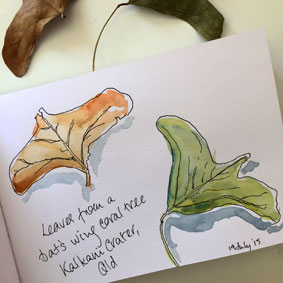 Leaves from a
bat's wing coral tree
Kalkani Crater,
Qld
19 July 15